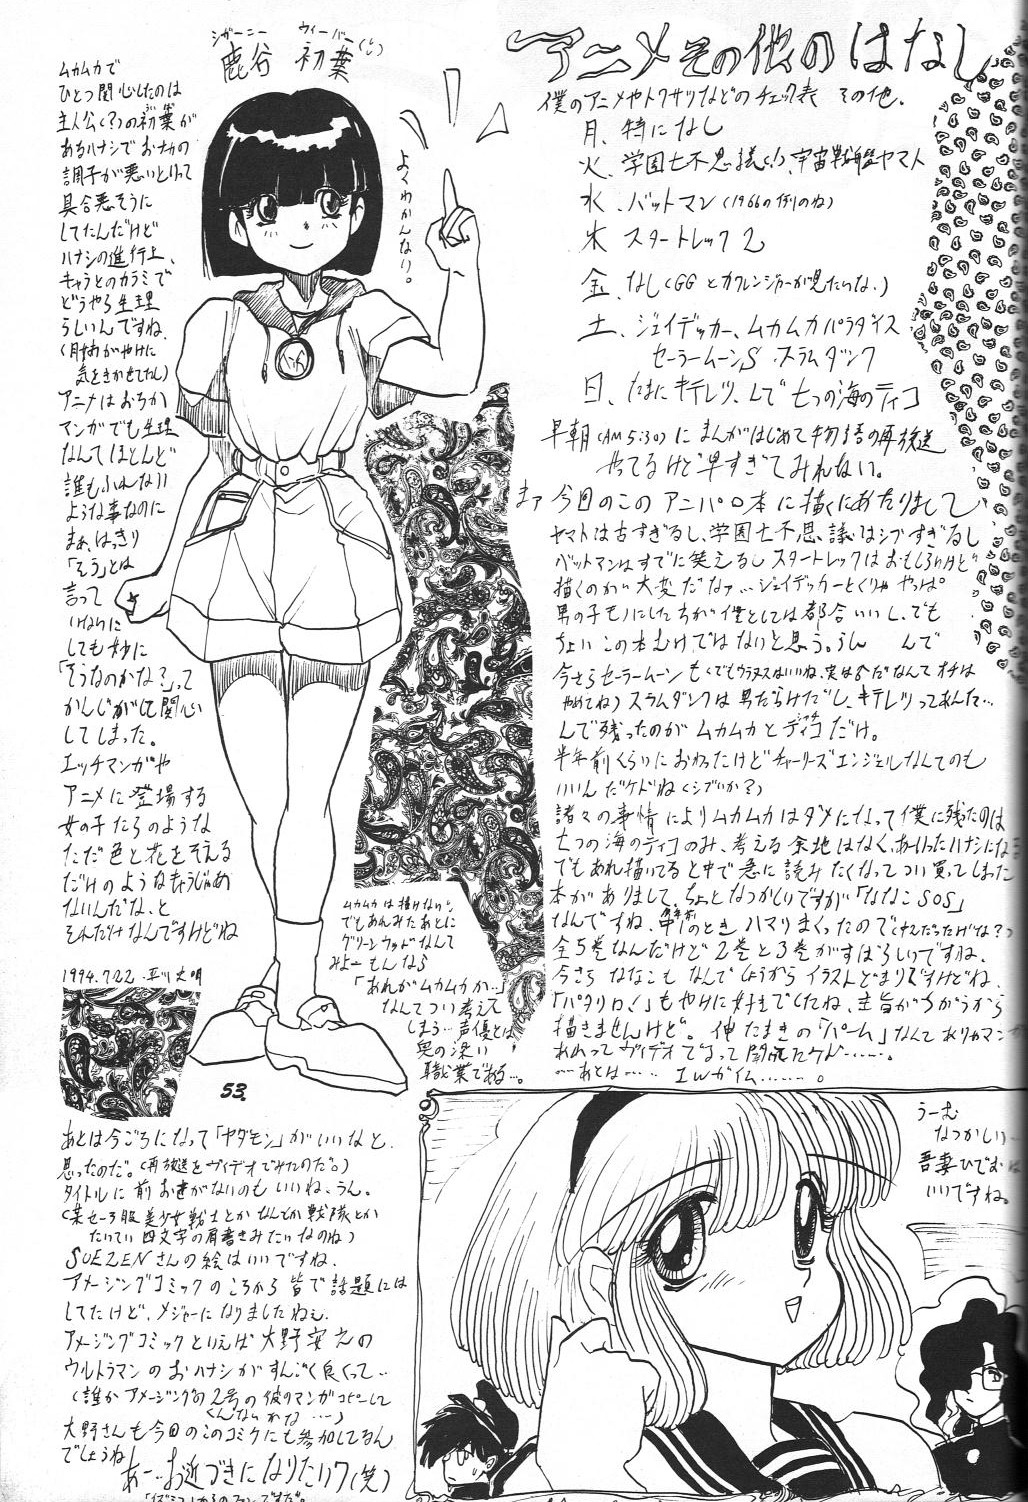 アニメその他のはなし
僕のアニメやトクサツなどのチェック表 その他.
月、特になし
火、学園七不思議(!)、宇宙戦艦ヤマト
水、バットマン(1966の例のね)
木 スタートレック2
金、なし(GGとカクレンジャーが見たいな.)
土、ジェイデッカー、ムカムカパラダイス
セーラームーンS.スラムダンク
日、たまにキテレツ、んで七つの海のティコ
早朝(AM5:30)にまんがはじめて物語の再放送
やってるけど早すぎてみれない。
まァ今回のこのアニパロ本に描くにあたりまして
ヤマトは古すぎるし、学園七不思議はシブすぎるし
バットマンはすでに笑えるしスタートレックはおもしろいけど
描くのが大変だなァ…ジェイデッカーとくりゃやっぱ
男の子モノにした方が僕としては都合いいし、でも
ちょいこの本むけではないと思う。うん んで
今さらセーラームーンも(でもウラヌスはいいね、実は
やめてね)スラムダンクは男だらけだし、キテレツってあんた…
んで残ったのがムカムカとティコだけ。
半年前くらいにおわったけどチャーリーズエンジェルなんてのも
いいんだケドね(シブいか?)
諸々の事情によりムカムカはダメになって僕に残ったのは
七つの海のティコのみ、考える余地はなく、あーいったハナシに
でもあれ描いてると中で急に読みたくなってつい買ってしまった
本がありまして、ちょとなつかしいですが「ななこSOS」
なんですね、のときハマりまくったので
全5巻なんだけど2巻と3巻がすばらしいですね、
今さらななこもなんでしょうからイラストどまりですけどね、
「パタリロ!」もやけに好きでしたね、主旨がちがうから
描きませんけど。伸たまきの「パーム」なんて
ヴィデオで
…あとは…… エルガイム……。
鹿谷 初葉
シガーニー ウィーバー
よくわかんない。
ムカムカで
ひとつ関心したのは
主人公(?)の初葉が
あるハナシでおナカの
調子が悪いといって
具合悪そうに
してたんだけど
ハナシの進行上、
キャラとのカラミで
どうやら生理
らしいんですね
気をきかせてたし)
アニメはおろか
マンガでも生理
なんてほとんど
誰もふれない
ような事なのに
まぁ、はっきり
「そう」とは
言って
いないに
しても妙に
「そうなのかな?」って
かんじがして関心
してしまった。
エッチマンガや
アニメに登場する
女の子たちのような
ただ色と花をそえる
だけのようなキャラじゃあ
ないんだな、と
それだけなんですけどね
1994.7.22.
ムカムカは描けない。
でもあれみたあとに
グリーンウッドなんて
みよーもんなら
「あれがムカムカか…」
なんてつい考えて
しまう…声優とは
奥の深い
職業である…。
53.
あとは今ごろになって「ヤダモン」がいいなと
思ったのだ。(再放送をヴィデオでみたのだ。)
タイトルに前おきがないのもいいね、うん。
(某セーラー服美少女戦士とかなんでか戦隊とか
たいてい四文字の肩書きみたいなのね)
SUEZENさんの絵はいいですね、
アメージングコミックのころから皆で話題には
してたけど、メジャーになりましたねぇ
アメージングコミックといえば大野安之の
ウルトラマンのおハナシがすんごく良くって…
(誰かアメージングの2号の彼のマンガコピーして
くんないかな…)
大野さんも今回のこのコミケにも参加してるん
でしょうね
あー…お近づきになりたいワ(笑)
うーむ
なつかしい…
吾妻ひでおは
いいですね。